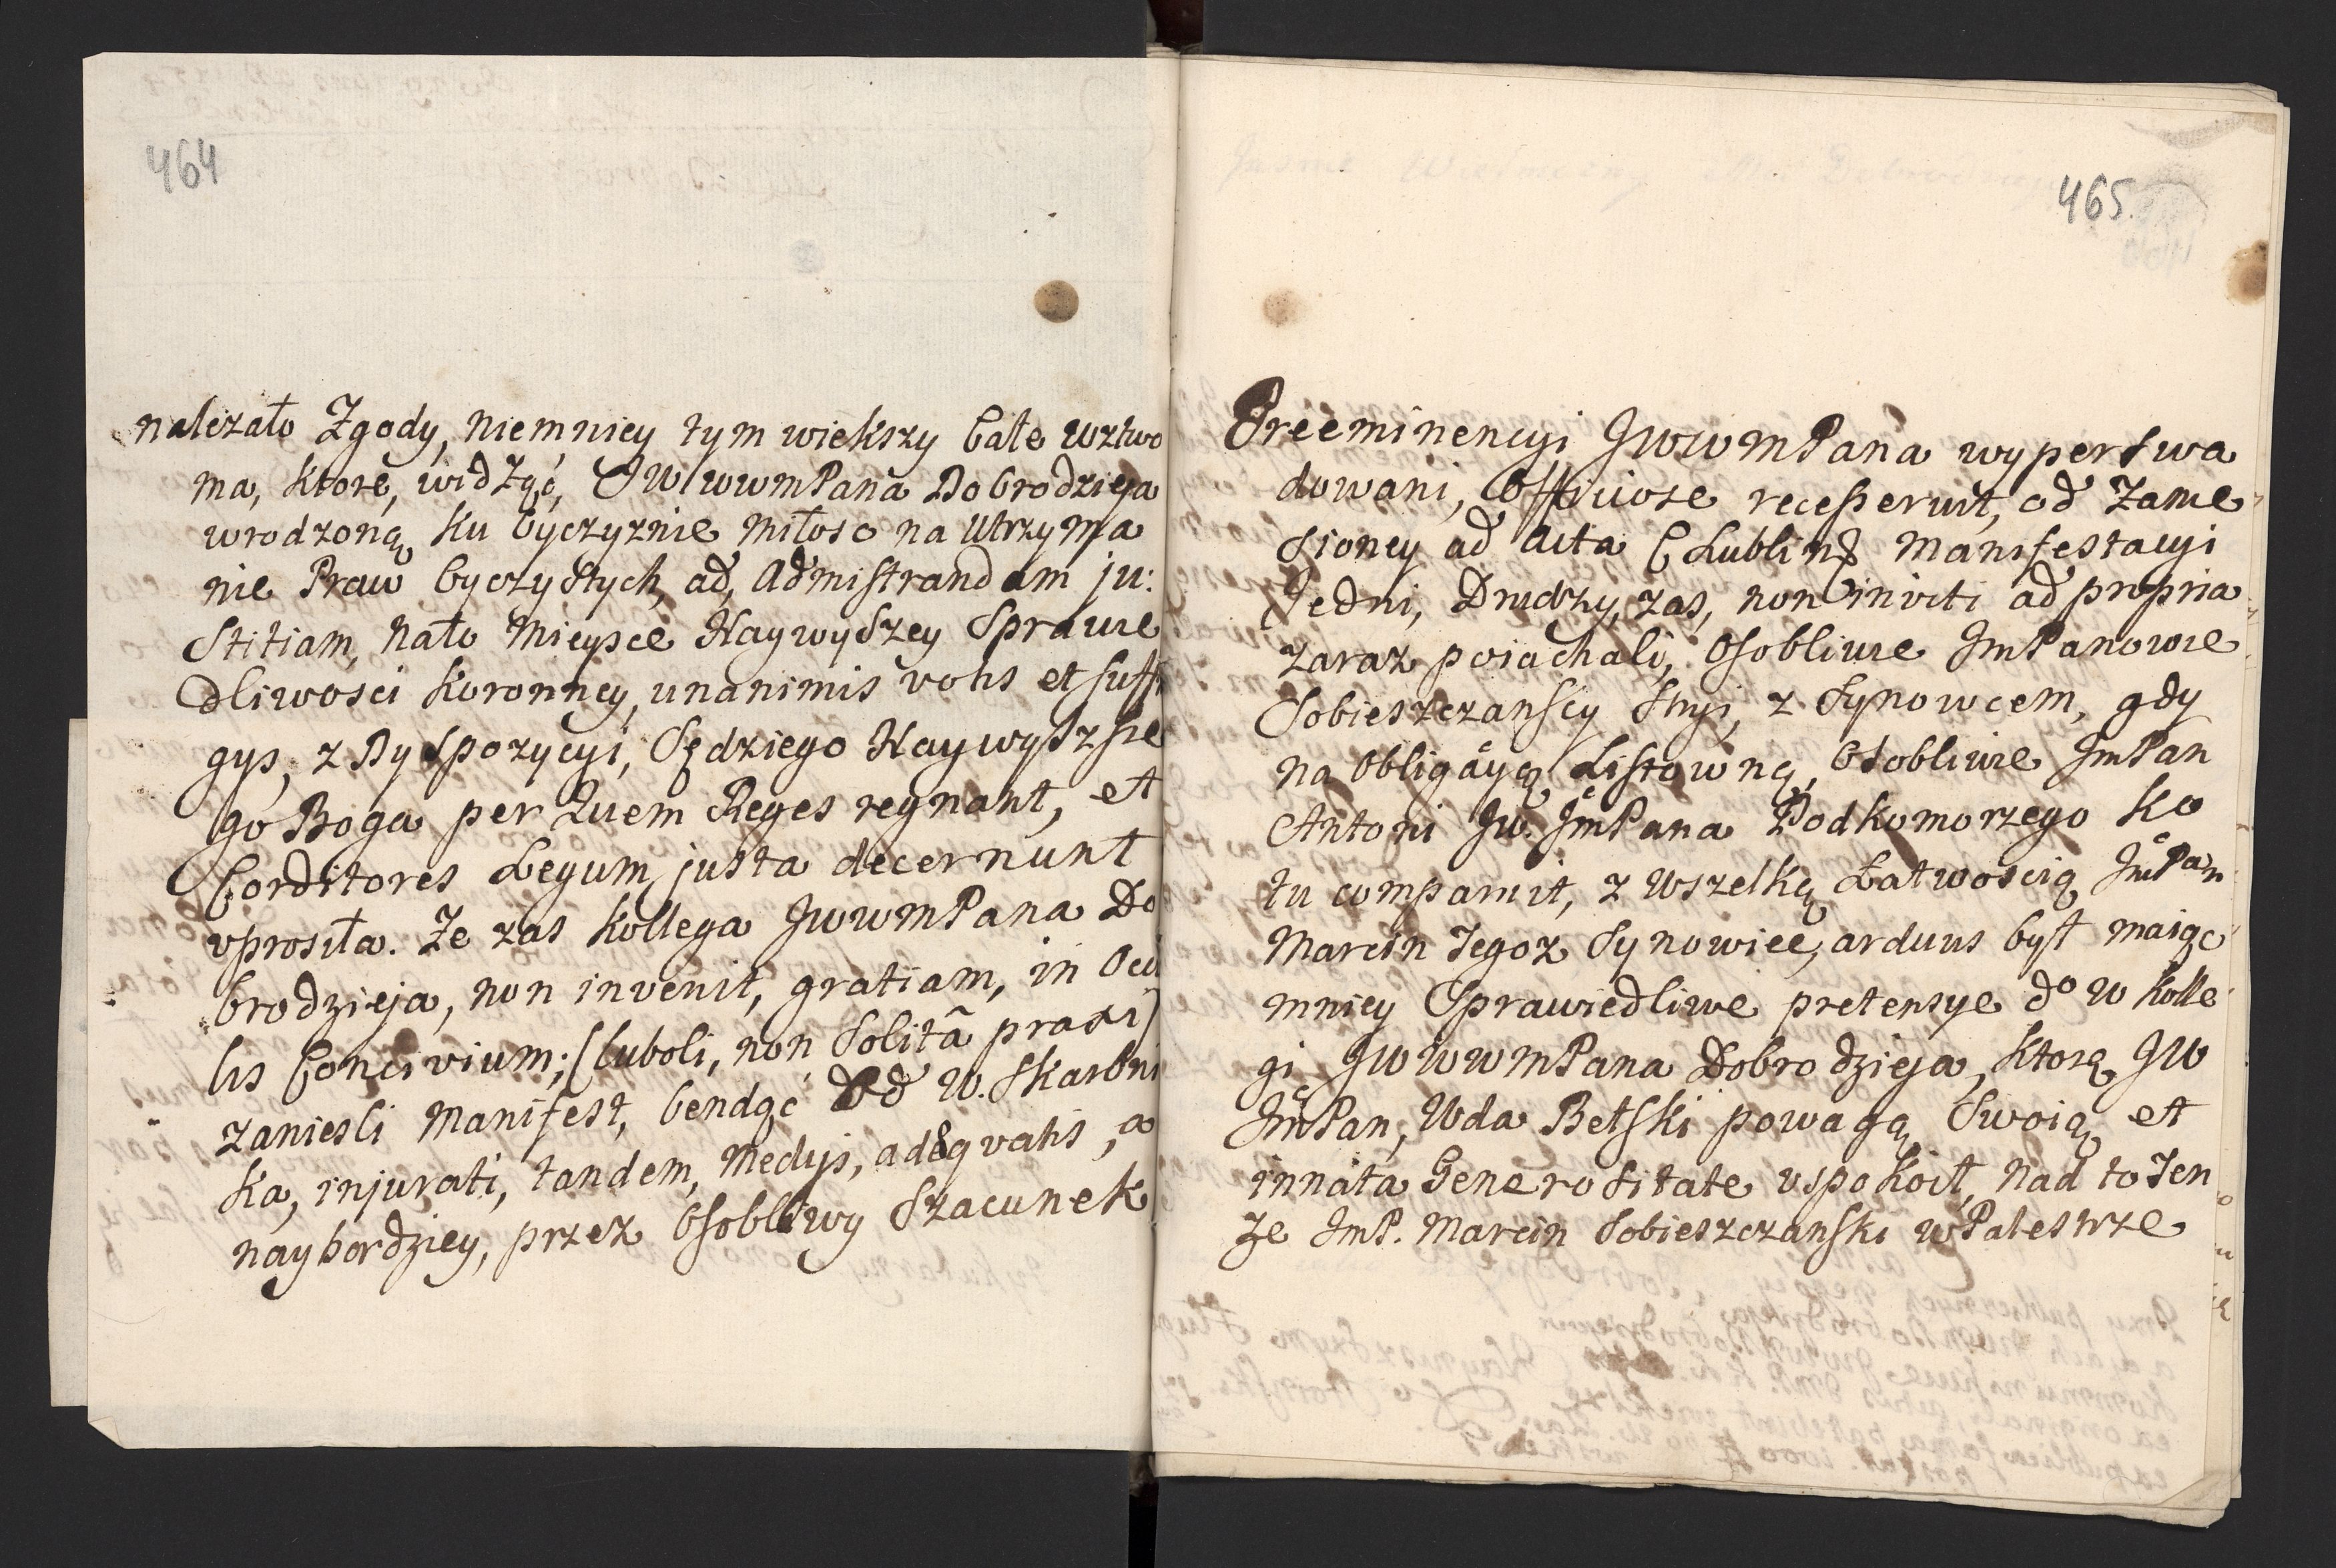 464
należało Zgody, niemniey tym wiekszy Całe wztwo
ma, ktore, widżąć, JWwwmPana Dobrodzieja
wrodzoną ku Oyczyznie miłosc na utrzyma
nie Praw Oyczystych, ad, Admistrandam ju:
stitiam, nato Mieysce Naywyszey Sprawie
dliwosci Koronney, unanimis votis et suffr
gys, z Dyspozycyi, Sędziego Naywyszsze
go Boga per Quem Reges regnant, et
Conditores Legum justa decernunt
uprosiła. Ze zas Kollega JwwmPana Do
brodzieja, non invenit, gratiam, in Ocu
lis Concivium; (luboli, non Solitâ praxi)
zaniesli Manifest, bendąć Od W. Skarbni
ka, injurati, tandem, Medijs, adeqvatis, a
naybordziey, przez Osobliwy Szacunek
465.
Preeminencyi JwwmPana wyperswa
dowani, Officiose recesserunt, od Zanie
sioney ad Acta C Lublin Manifestacyi
Jedni, Drudzy, zas, non inviti ad propria
zaraz poiachali, Osobliwie ImPanowie
Sobieszczanscy Stryi, z Synowcem, gdy
na Obligaąyą Listowną, Osobliwie ImPan
Antoni Jw. JmPana Podkomorzego Ko
tu comparuit, z Wszelką Łatwością JmPan
Marcin Tegoz Synowiec, arduus był maiąc
mniey Sprawiedliwe pretensye do W Kolle
gi JwwwmPana Dobrodzieja, ktorą JW
JmPan, Wda Bełski powagą Swoią et
innata Generositate uspokoił, nad to Ten
ze ImP. Marcin Sobieszczanski w Palestrze